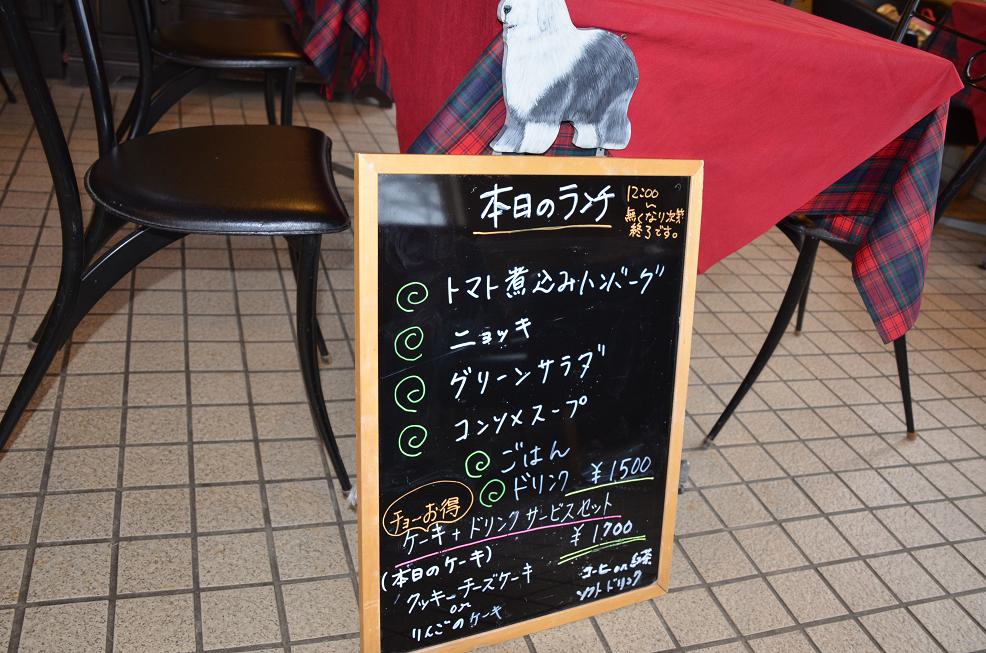 本日のランチ
12:00
〜
無くなり次第
終了です。
トマト煮込みハンバーグ
ニョッキ
グリーンサラダ
コンソメスープ
ごはん
ドリンク ¥1500
チョーお得
ケーキ+ドリンクサービスセット
¥1,700
(本日のケーキ)
クッキーチーズケーキ
or
りんごのケーキ
コーヒーor紅茶
ソフトドリンク